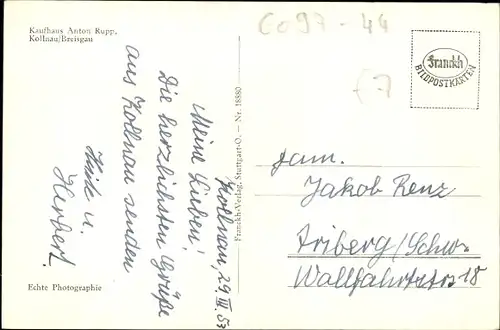 Kaufhaus Anton Rupp,
Kollnau/Breisgau
C097-44
Franckh
BILDPOSTKARTEN
Kollnau, 29.III.53
Meine Lieben!
Die herzlichsten Grüße
aus Kollnau senden
u.
Herbert.
Franckh-Verlag, Stuttgart-O. – Nr. 18880
Fam.
Jakob Renz
Triberg/Schw.
Wallfahrtstr. 18
Echte Photographie